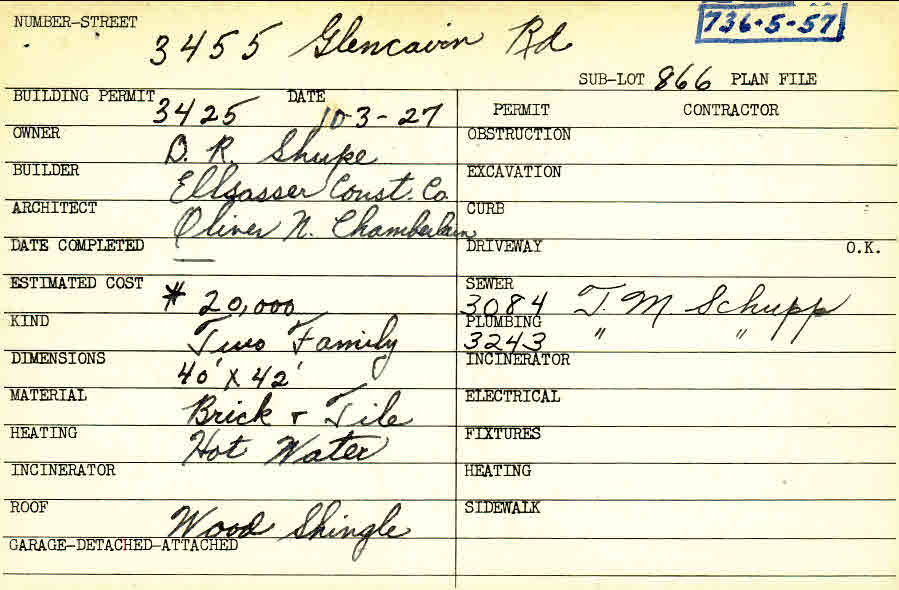 NUMBER-STREET
736-5-57
3455 Glencairn Rd
SUB-LOT 866 PLAN FILE
BUILDING PERMIT 3425 DATE 10-3-27
PERMIT CONTRACTOR
OWNER D. R. Shupe
OBSTRUCTION
BUILDER Ellsasser Const. Co.
EXCAVATION
ARCHITECT Oliver N. Chamberlain
CURB
DATE COMPLETED —
DRIVEWAY O.K.
ESTIMATED COST # 20,000
SEWER 3084 T. M Schupp
KIND Two Family
PLUMBING 3243 " "
DIMENSIONS 40' X 42'
INCINERATOR
MATERIAL Brick + Tile
ELECTRICAL
HEATING Hot Water
FIXTURES
INCINERATOR
HEATING
ROOF Wood Shingle
SIDEWALK
GARAGE-DETACHED-ATTACHED